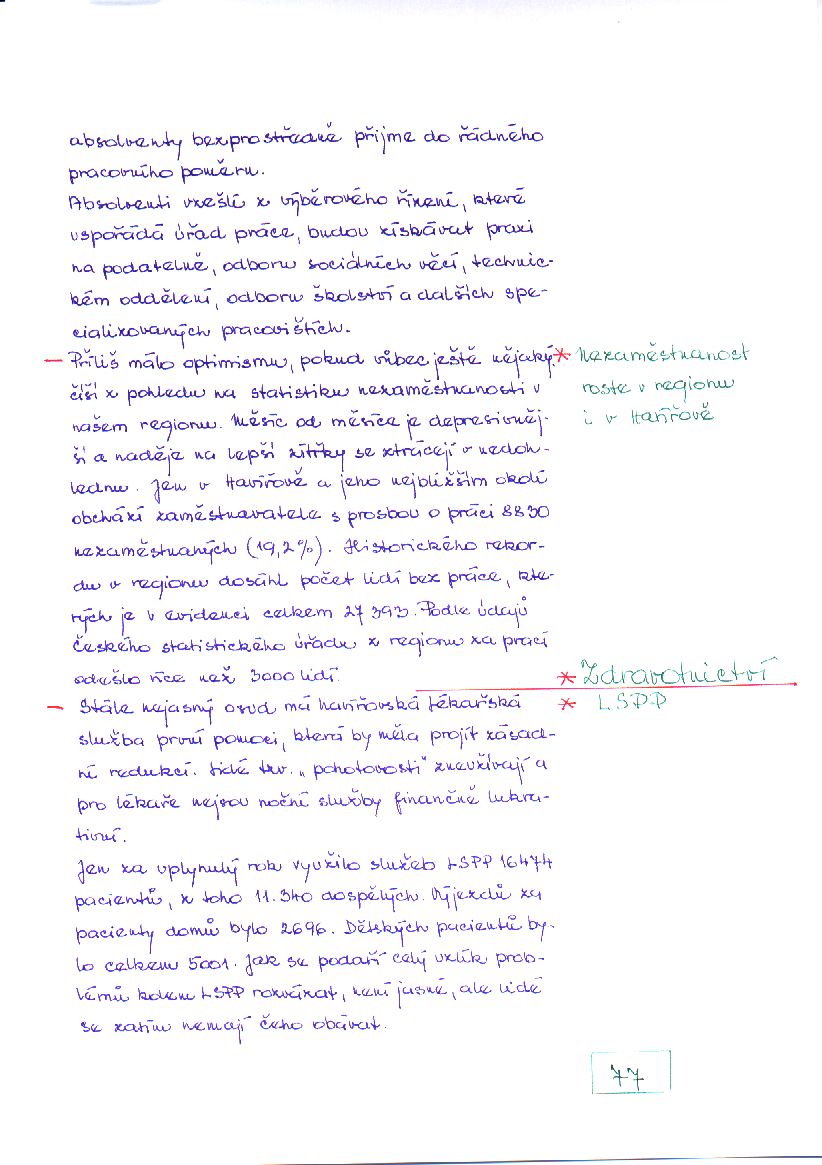 absolventy bezprostředně přijme do řádného
pracovního poměru.
Absolventi vzešlí z výběrového řízení, které
uspořádá úřad práce, budou získávat praxi
na podatelně, odboru sociálních věcí, technic-
kém oddělení, odboru školství a dalších spe-
cializovaných pracovištích.
— Příliš málo optimismu, pokud vůbec ještě nějaký,
čiší z pohledu na statistiku nezaměstnanosti v
našem regionu. Měsíc od měsíce je depresivněj-
ší a naděje na lepší zítřky se ztrácejí v nedoh-
lednu. Jen v Havířově a jeho nejbližším okolí
obchází zaměstnavatele s prosbou o práci 8830
nezaměstnaných (19,2%). Historického rekor-
du v regionu dosáhl počet lidí bez práce, kte-
rých je v evidenci celkem 27 393. Podle údajů
Českého statistického úřadu z regionu za prací
odešlo více než 3000 lidí.
— Stále nejasný osud má havířovská lékařská
služba první pomoci, která by měla projít zásad-
ní redukcí. Lidé tzv. „pohotovosti" zneužívají a
pro lékaře nejsou noční služby finančně lukra-
tivní.
Jen za uplynulý rok využilo služeb LSPP 16474
pacientů, z toho 11.340 dospělých. Výjezdů za
pacienty domů bylo 2696. Dětských pacientů by-
lo celkem 5001. Jak se podaří celý uzlík prob-
lémů kolem LSPP rozvázat, není jasné, ale lidé
se zatím nemají čeho obávat.
* Nezaměstnanost
roste v regionu
i v Havířově
* Zdravotnictví
* LSPP
77